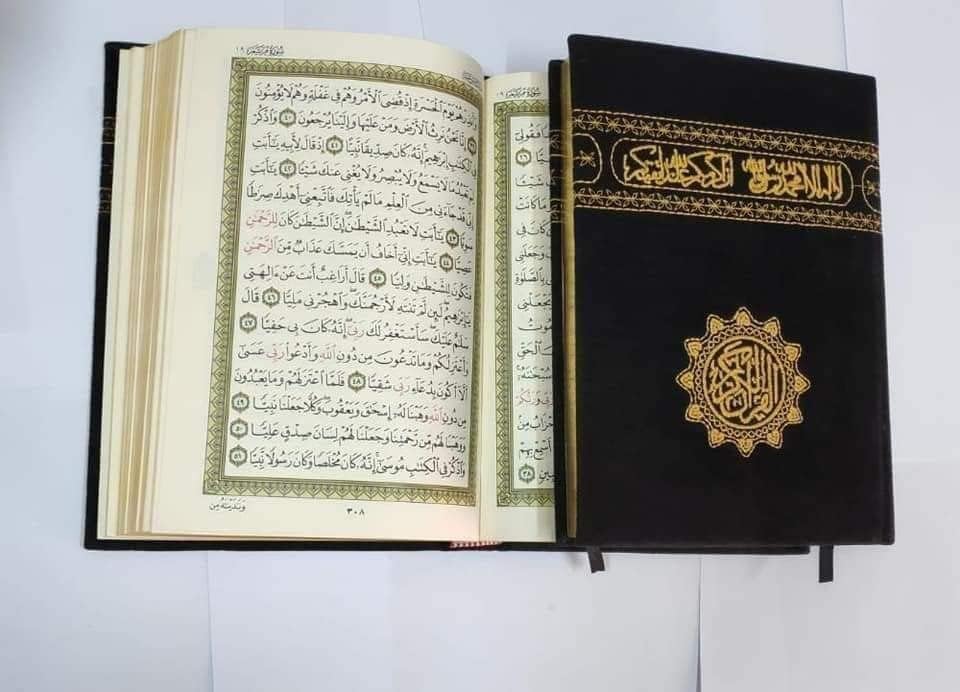 سُورَةُ مَرْيَمَ ١٩
وَأَنذِرْهُمْ يَوْمَ ٱلْحَسْرَةِ إِذْ قُضِىَ ٱلْأَمْرُ وَهُمْ فِى غَفْلَةٍ وَهُمْ لَا يُؤْمِنُونَ
٣٩ إِنَّا نَحْنُ نَرِثُ ٱلْأَرْضَ وَمَنْ عَلَيْهَا وَإِلَيْنَا يُرْجَعُونَ ٤٠ وَٱذْكُرْ
فِى ٱلْكِتَٰبِ إِبْرَٰهِيمَ إِنَّهُۥ كَانَ صِدِّيقًا نَّبِيًّا ٤١ إِذْ قَالَ لِأَبِيهِ يَٰٓأَبَتِ
لِمَ تَعْبُدُ مَا لَا يَسْمَعُ وَلَا يُبْصِرُ وَلَا يُغْنِى عَنكَ شَيْـًٔا ٤٢ يَٰٓأَبَتِ
إِنِّى قَدْ جَآءَنِى مِنَ ٱلْعِلْمِ مَا لَمْ يَأْتِكَ فَٱتَّبِعْنِىٓ أَهْدِكَ صِرَٰطًا
سَوِيًّا ٤٣ يَٰٓأَبَتِ لَا تَعْبُدِ ٱلشَّيْطَٰنَ إِنَّ ٱلشَّيْطَٰنَ كَانَ لِلرَّحْمَٰنِ
عَصِيًّا ٤٤ يَٰٓأَبَتِ إِنِّىٓ أَخَافُ أَن يَمَسَّكَ عَذَابٌ مِّنَ ٱلرَّحْمَٰنِ
فَتَكُونَ لِلشَّيْطَٰنِ وَلِيًّا ٤٥ قَالَ أَرَاغِبٌ أَنتَ عَنْ ءَالِهَتِى
يَٰٓإِبْرَٰهِيمُ لَئِن لَّمْ تَنتَهِ لَأَرْجُمَنَّكَ وَٱهْجُرْنِى مَلِيًّا ٤٦ قَالَ
سَلَٰمٌ عَلَيْكَ سَأَسْتَغْفِرُ لَكَ رَبِّىٓ إِنَّهُۥ كَانَ بِى حَفِيًّا ٤٧
وَأَعْتَزِلُكُمْ وَمَا تَدْعُونَ مِن دُونِ ٱللَّهِ وَأَدْعُوا۟ رَبِّى عَسَىٰٓ
أَلَّآ أَكُونَ بِدُعَآءِ رَبِّى شَقِيًّا ٤٨ فَلَمَّا ٱعْتَزَلَهُمْ وَمَا يَعْبُدُونَ
مِن دُونِ ٱللَّهِ وَهَبْنَا لَهُۥٓ إِسْحَٰقَ وَيَعْقُوبَ وَكُلًّا جَعَلْنَا نَبِيًّا ٤٩
وَوَهَبْنَا لَهُم مِّن رَّحْمَتِنَا وَجَعَلْنَا لَهُمْ لِسَانَ صِدْقٍ عَلِيًّا ٥٠
وَٱذْكُرْ فِى ٱلْكِتَٰبِ مُوسَىٰٓ إِنَّهُۥ كَانَ مُخْلَصًا وَكَانَ رَسُولًا نَّبِيًّا ٥١
وَنَٰدَيْنَٰهُ مِن
٣٠٨
لا إله إلا الله محمد رسول الله
القرآن الكريم